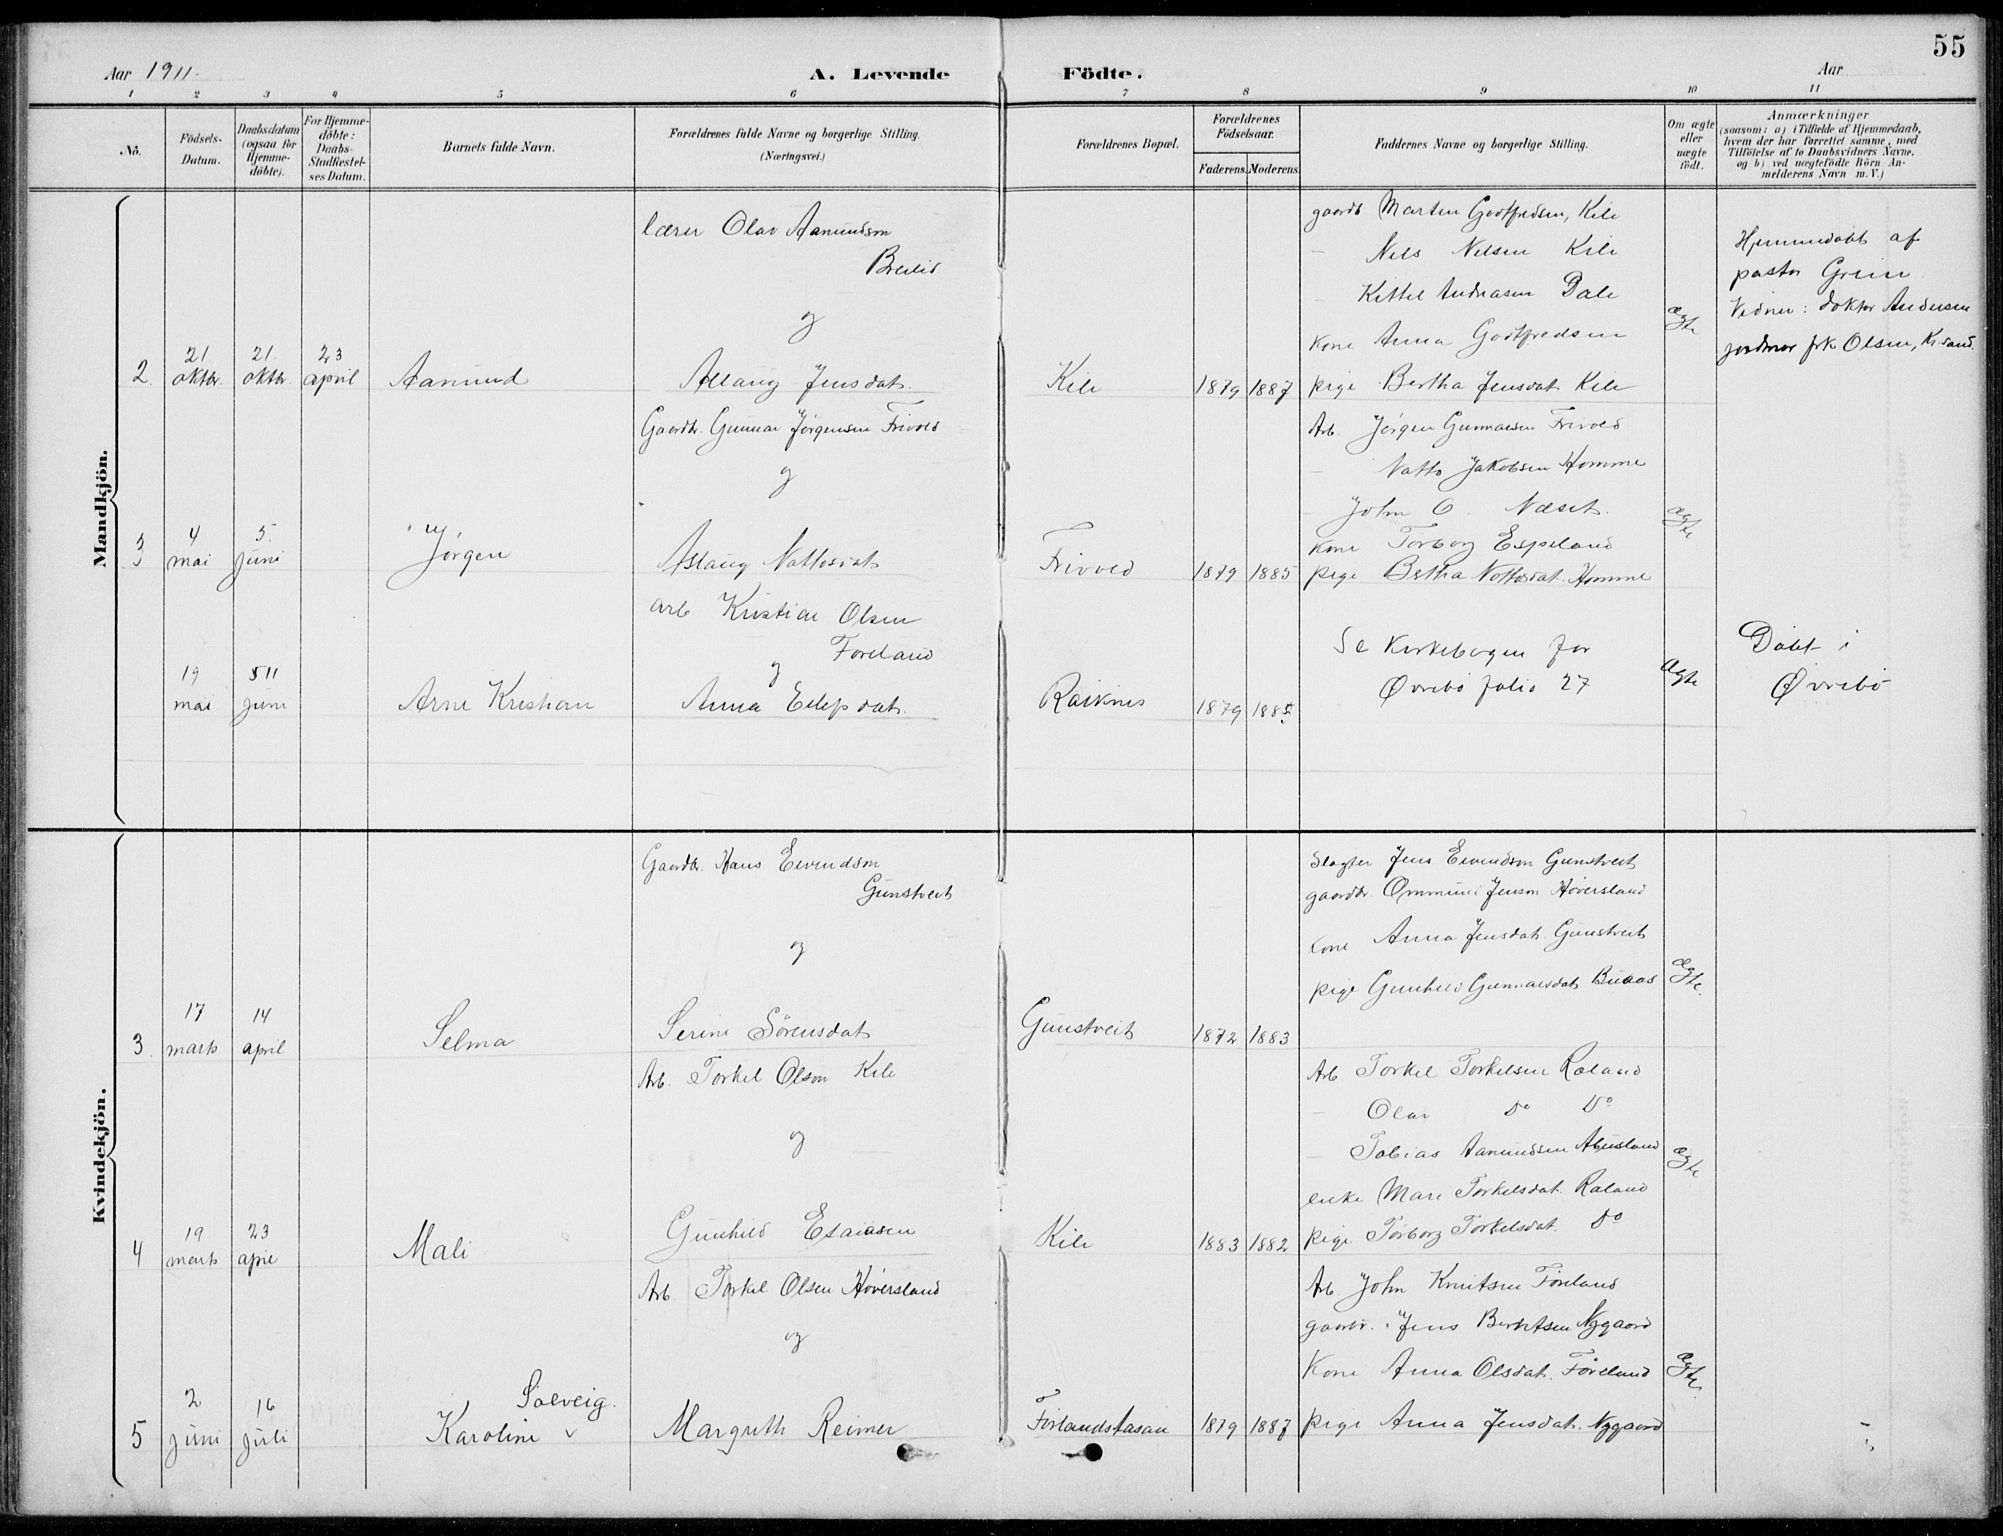 55
Aar 1911.
A. Levende Födte.
Aar
1 2 3 4 5 6 7 8 9 10 11
Nô.
Födsels-Datum.
Daabsdatum (ogsaa for Hjemme-döbte).
For Hjemme-döbte: Daabs-Stadfæstel-ses Datum.
Barnets fulde Navn.
Forældrenes fulde Navne og borgerlige Stilling. (Næringsvei.)
Forældrenes Bopæl.
Forældrenes Födselsaar.
Faderens. Moderens.
Faddernes Navne og borgerlige Stilling.
Om ægte eller uægte födt.
Anmærkninger
(saasom: a) i Tilfælde af Hjemmedaab,
hvem der har forrettet samme, med
Tilföielse af to Daabsvidners Navne,
og b) ved uægtefödte Börn An-
melderens Navn m. V.)
Mandkjön.
lærer Olav Aamundson
Breilid
og
2 21 oktbr. 21 oktbr. 23 april Aamund Aslaug Jensdat. Kile 1879 1887
gaardb Marten Godtfredsen, Kile
— Nils Nilsen Kile
— Kittel Andreasen Dale
kone Anna Godtfredsen
pige Bertha Jensdat Kile
ægte
Hjemmedøbt af
pastor Greim
Vidner: doktor Andersen
jordmor frk Olsen, Kr.sand.
Gaardbr. Gunnar Jørgensen Frivold
og
3 4 mai 5. juni Jørgen Aslaug Nattosdat Frivold 1879 1885
Arb. Jørgen Gunnarsen Frivold
— Natto Jakobsen Homme
— John O. Næset.
kone Torborg Espeland
pige Bertha Nottosdat. Homme
ægte
arb Kristian Olsen
Føreland
og
19 mai 5 11 juni Arne Kristian Anna Eilefsdat. Røiknes 1879 1885
Se Kirkebogen for
Øvrebø folio 27
ægte
Døbt i
Øvrebø
Kvindekjön.
Gaardbr. Hans Eivindson
Gunstveit
og
3. 17 marts 14 april Selma Serine Sørensdat Gunstveit 1872 1883
Slagter Jens Eivindson Gunstveit
gaardbr. Ommund Jenson Høversland
kone Anna Jensdat. Gunstveit
pige Gunhild Gunnarsdat Buaas
ægte.
Arb. Torkel Olson Kile
og
4 19 marts 23 april Mali Gunhild Esaiasen Kile 1883 1882
Arb Torkel Torkelsen Røland
— Olav Do Do
— Tobias Aamundsen Abusland
enke Mari Torkelsdat. Røland
pige Torborg Torkelsdat. Do
ægte
Arb. Torkel Olsen Høversland
og
5 2 juni 16 juli Solveig. Karoline v Margreth Reimer Førlandsaasan 1879 1887
Arb John Knutsen Føreland
gaardbr. Jens Berntsen Nygaard
Kone Anna Olsdat. Føreland
pige Anna Jensdat. Nygaard
ægte.